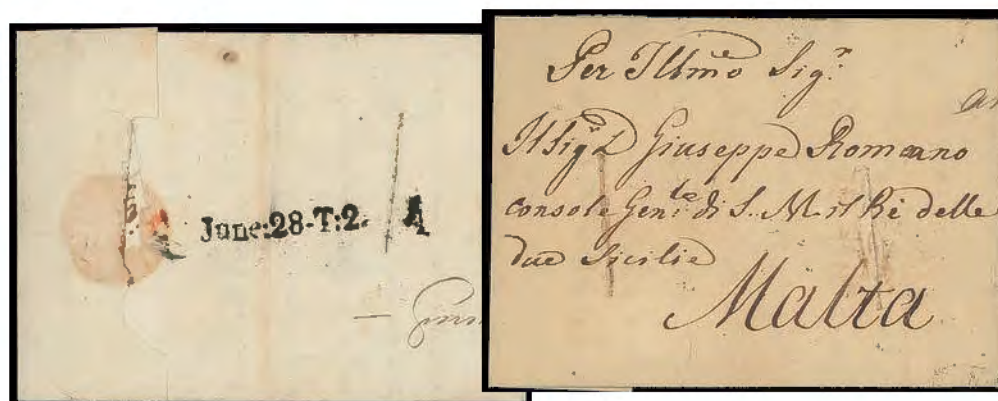 June:28-T:2. A
Per Illmo Sigr.
Il Sigr D Giuseppe Romano
console Genle. di S. M. il Rè delle
due Sicilie
Malta